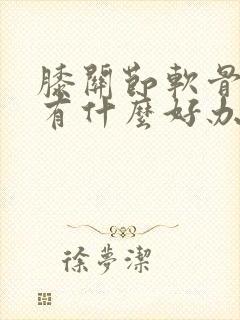 膝關節軟骨
有什麼好办
徐夢潔